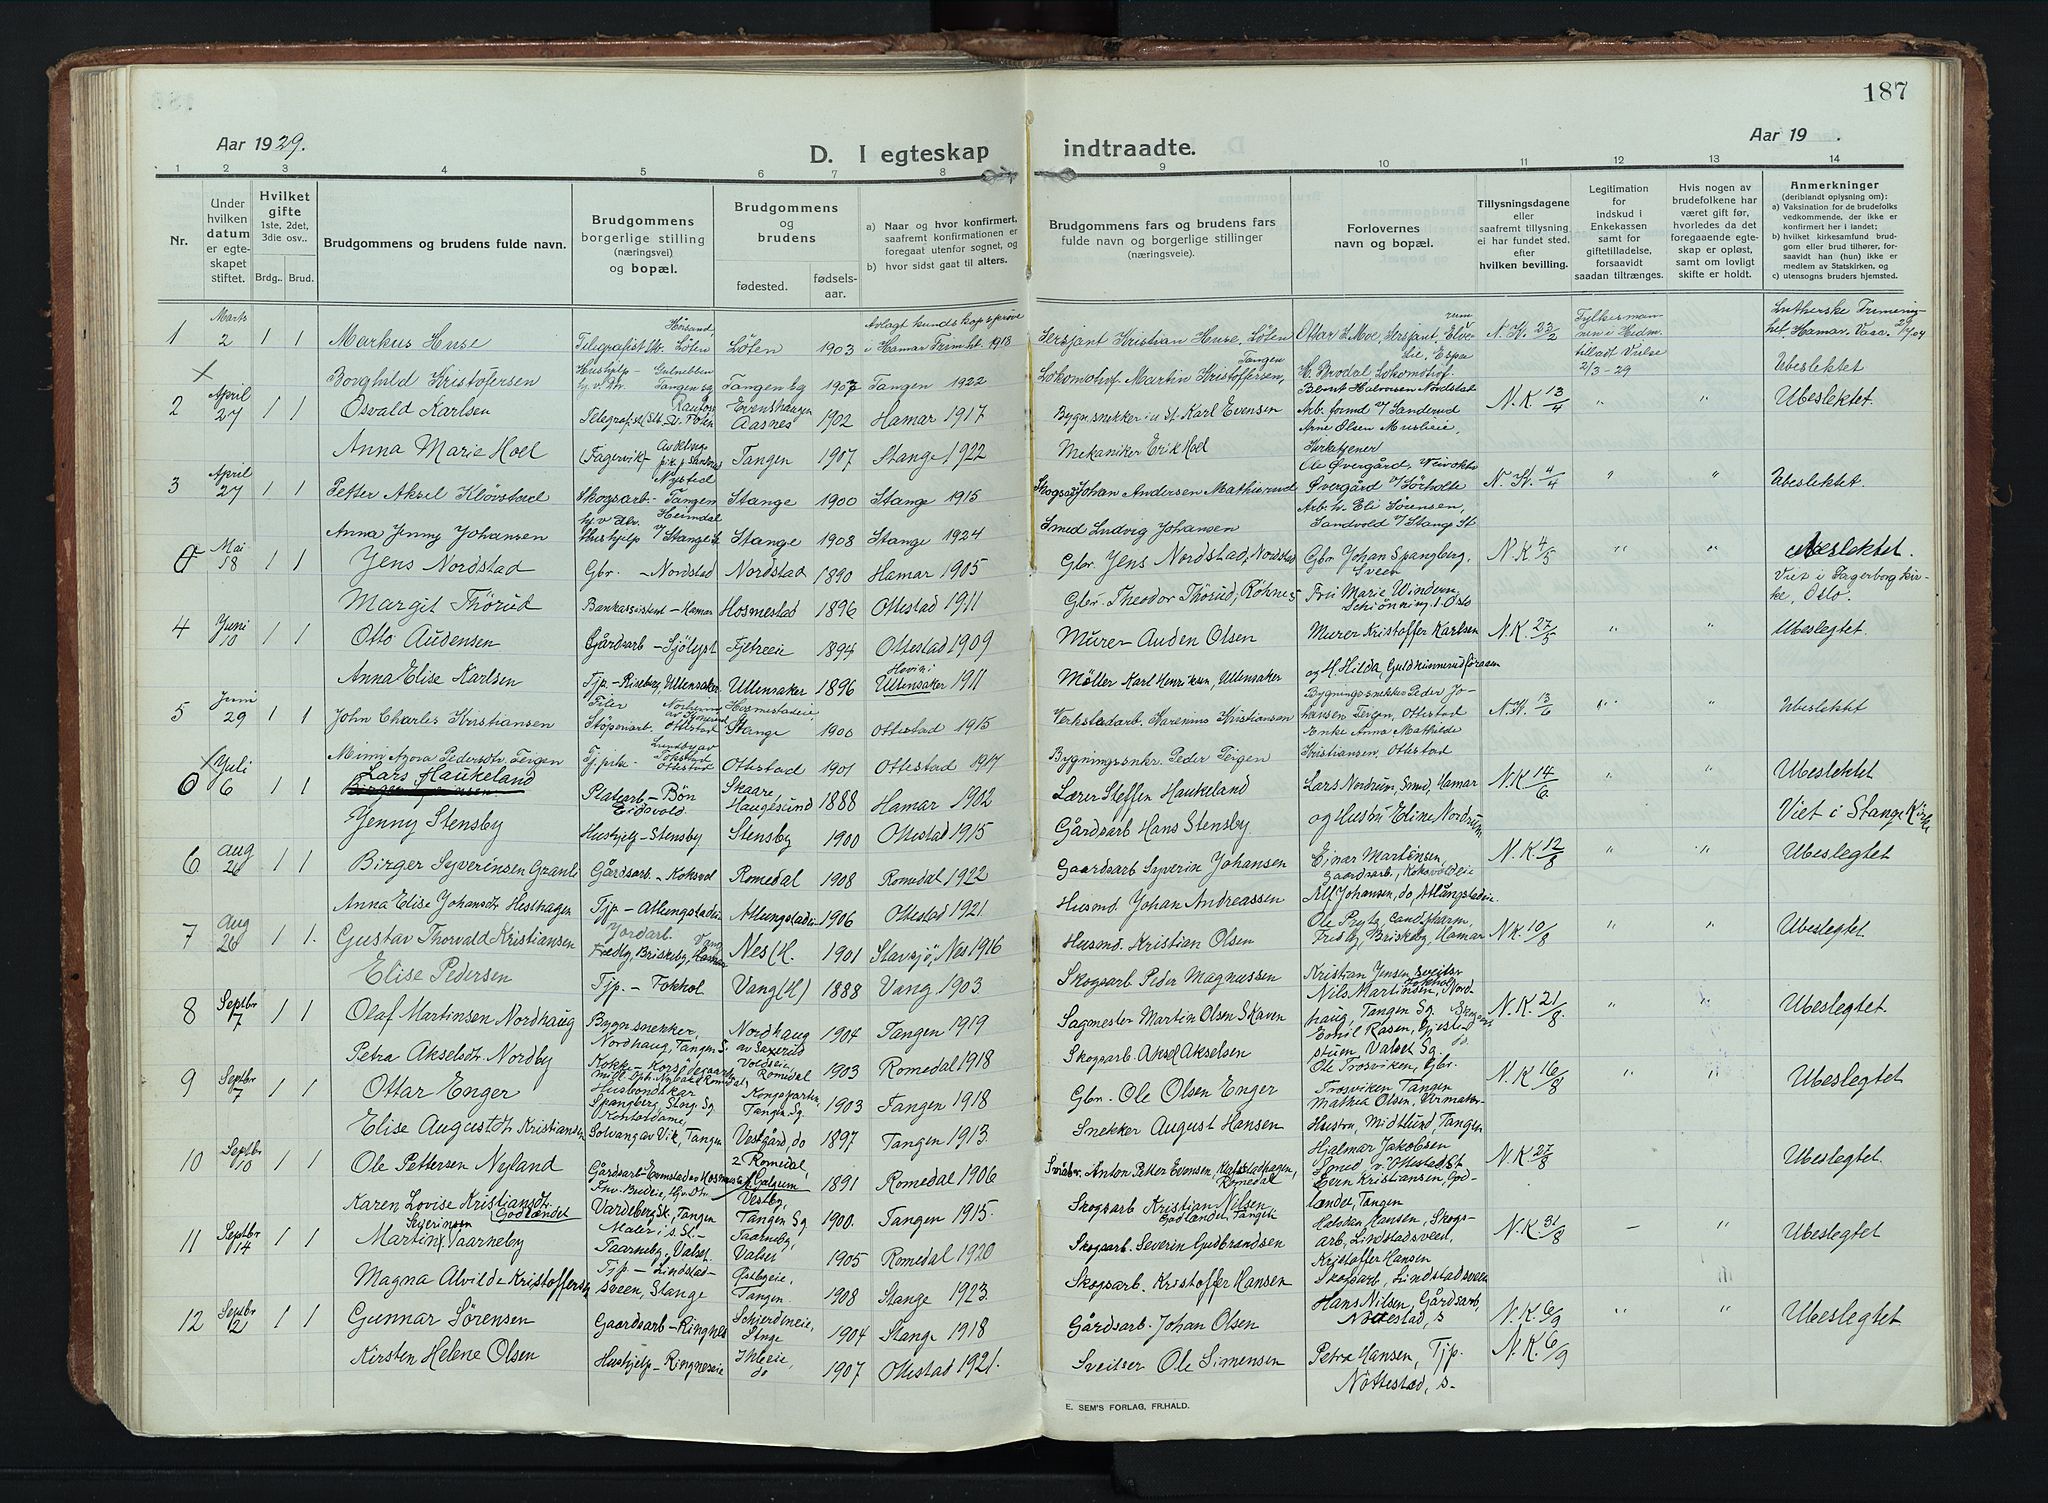 187
Aar 1929.
D. I egteskap
indtraadte.
Aar 19 .
1 2 3 4 5 6 7 8 9 10 11 12 13 14
Nr.
Under hvilken datum er egteskapet stiftet.
Hvilket gifte 1ste, 2det, 3die osv..
Brdg.. Brud.
Brudgommens og brudens fulde navn.
Brudgommens borgerlige stilling (næringsvei) og bopæl.
Brudgommens og brudens
fødested. fødselsaar.
a) Naar og hvor konfirmert, saafremt konfirmationen er foregaat utenfor sognet, og
b) hvor sidst gaat til alters.
Brudgommens fars og brudens fars fulde navn og borgerlige stillinger (næringsveie).
Forlovernes navn og bopæl.
Tillysningsdagene eller saafremt tillysning ei har fundet sted, efter hvilken bevilling.
Legitimation for indskud i Enkekassen samt for giftetilladelse, forsaavidt saadan tiltrænges.
Hvis nogen av brudefolkene har været gift før, hvorledes da det foregaaende egteskap er opløst, samt om lovligt skifte er holdt.
Anmerkninger (deriblandt oplysning om):
a) Vaksination for de brudefolks vedkommende, der ikke er konfirmert her i landet;
b) hvilket kirkesamfund brudgom eller brud tilhører, forsaavidt han (hun) ikke er medlem av Statskirken, og
c) utensogns bruders hjemsted.
1 Marts 2 1 1 Markus Huse Telegrafist Løten Løten 1903 Avlagt kundskapsprøve i Hamar Frim.ht. 1918 Sersjant Kristian Huse, Løten Ottar L. Moe, Sersjant, N. K. 23/2 Fylkesmannen i Hedm. tilladt Vielse 2/3-29
Borghild Kristofersen Hushjelp Tangen 1907 Tangen 1922 Lokomotivf. Martin Kristoffersen, Tangen H. Brodal Lokomotivf. Ubeslektet
2 April 27 1 1 Osvald Karlsen Evenshaugen Aasnes 1902 Hamar 1917 Bygn.snekker Karl Evensen Bernt Halvorsen Nordstad Arb. formd v/ Sanderud N. K. 13/4 " " Ubeslektet.
Anna Marie Hoel (Fagervik) Tangen 1907 Stange 1922 Mekaniker Erik Hoel Arne Olsen Kirketjener
3 April 27 1 1 Petter Aksel Kløvstad Skogsarb. Tangen Stange 1900 Stange 1915 Skogsarb Johan Andersen Mathisrud Ole Øvergård, Øvergård v/ Sørholte N. K. 4/4 " " Ubeslektet.
Anna Jenny Johansen Hushjelp v/ Stange St. Stange 1908 Stange 1924 Smed Ludvig Johansen Arb. Eli Sørensen, Sandvold v/ Stange St
Mai 18 1 1 Jens Nordstad Gbr. - Nordstad Nordstad 1890 Hamar 1905 Gbr. Jens Nordstad, Nordstad Gbr Johan Spangberg, Sveen N. K 4/5 " " Ubeslektet.
Margit Thørud Bankassistent - Hamar Hosmestad 1896 Ottestad 1911 Gbr. Theodor Thørud, Röhnes Fru Marie Windern, Schiönning. 1. Oslo Viet i Fagerborg kirke, Oslo.
4 Juni 10 1 1 Otto Audensen Gårdsarb - Sjölyst Fjetreeie 1894 Ottestad 1909 Murer Auden Olsen Murer Kristoffer Karlsen N.K. 27/5 " " Ubeslegtet.
Anna Elise Karlsen Tjp. - Riseberg, Ullensaker Ullensaker 1896 Hovin i Ullensaker 1911 Møller Karl Henriksen, Ullensaker og H. Hilda
5 Juni 29 1 1 John Charles Kristiansen Støperiarb. Ottestad Hosmestadeie, Stange 1900 Ottestad 1915 Verkstadarb. Karenius Kristiansen Bygningssnekker Peder Johansen Teigen, Ottestad N. K. 13/6 " " Ubeslektet
Mimi Azora Pedersdtr Teigen Tj.pike Ottestad Ottestad 1901 Ottestad 1917 Bygningssnkr. Peder Teigen Enke Anna Mathilde Kristiansen, Ottestad
6 Juli 6 1 1 Lars Haukeland Platearb - Bön Eidsvold Skaare Haugesund 1888 Hamar 1902 Lærer Steffen Haukeland Lars Nordrum, Smed, Hamar N. K 14/6 " " Ubeslektet
Jenny Stensby Hushjelp - Stensby Stensby 1900 Ottestad 1915 Gårdsarb Hans Stensby og Hustru Eline Nordrum Viet i Stange Kirke
6 Aug 26 1 1 Birger Syverinsen Granli Gårdsarb - Koksvol Romedal 1908 Romedal 1922 Gaardsarb Syverin Johansen Ejnar Martensen, Gaardsarb, Koksvoldeie N. K. 12/8 " " Ubeslegtet
Anna Elise Johansdtr Hesthagen Tjp - Atlungstadeie Atlungstadeie 1906 Ottestad 1921 Husmd. Johan Andreassen Alf Johansen, do Atlungstadeie.
7 Aug 26 1 1. Gustav Thorvald Kristiansen Jordarb. Fredly, Briskeby, Hamar Nes (H. 1901 Stavsjö, Nes 1916 Husmd. Kristian Olsen Ole Prytz, Candpharm, Fredly, Briskeby, Hamar N.K. 10/8 " " Ubeslegtet
Elise Pedersen Tjp. - Fokhol Vang (H) 1888 Vang 1903 Skogsarb Peder Magnussen Kristian Jensen, sveitser Fokhol
8 Septbr 7 1 1 Olaf Martinsen Nordhaug Bygn.snekker, Nordhaug, Tangen S. Nordhaug av Saxerud 1904 Tangen 1919 Sagmester Martin Olsen Skaven Nils Martinsen, Nordhaug, Tangen Sg. N. K. 21/8. " " Ubeslegtet.
Petra Akselsdtr Nordby Kokke - Korsödegaarden Voldseie, Romedal 1903 Romedal 1918 Skogsarb Aksel Akselsen Emil Rasen, Gjestestuen, Valset Sg.
9 Septbr 7 1 1 Ottar Enger Husbondskar Spangberg, Stng. Sg Kongsparten, Tangen Sg 1903 Tangen 1918 Gbr. Ole Olsen Enger Ole Trosviken, Gbr. Trosviken, Tangen N. K 16/8 " " Ubeslegtet
Elise Augustdtr Kristiansen Kontordame, Solvang av Vik, Tangen Vestgård, do 1897 Tangen 1913. Snekker August Hansen Mathea Olsen, Urmakerhustru, Midtlund, Tangen
10 Septbr 10 1 1 Ole Pettersen Nyland Gårdsarb Romedal, 1891 Romedal 1906 Anton Petter Evensen, Romedal Hjalmar Jakobsen Smed v. Ottestad St N. K 27/8 " " Ubeslegtet.
Karen Lovise Kristiansdtr Godlændet Vardeberg Sk, Tangen Vestby, Tangen Sg 1900. Tangen 1915. Skogsarb Kristian Nilsen Godlændet Tangen Even Kristiansen, Godlændet, Tangen
11 Septbr 14 1 1 Martin Severinsen Taarneby Maler i s. St. - Taarneby, Valset Taarneby, Valset 1905 Romedal 1920 Skogsarb. Severin Gudbrandsen Halvdan Hansen, Skogsarb, Lindstadsveen N. K. 31/8 - " Ubeslegtet
Magna Alvilde Kristoffersen Tjp - Lindstadsveen, Stange Østbyeie, Tangen. 1908 Stange 1923. Skogsarb. Kristoffer Hansen Kristoffer Hansen Skogsarb, Lindstadsveen
12 Septbr 21 1 1 Gunnar Sørensen Gaardsarb - Ringnes Skjerdineie, Stnge 1904 Stange 1918 Gårdsarb. Johan Olsen Hans Nilsen, Gårdsarb, Nøttestad, s N. K. 6/9 " " Ubeslegtet
Kirsten Helene Olsen Hushjelp - Ringneseie Ihleeie, do 1907 Ottestad 1921. Sveitser Ole Simensen Petra Hansen, Tjp. Nöttestad, s- N. K. 6/9
E. SEM'S FORLAG, FR.HALD.